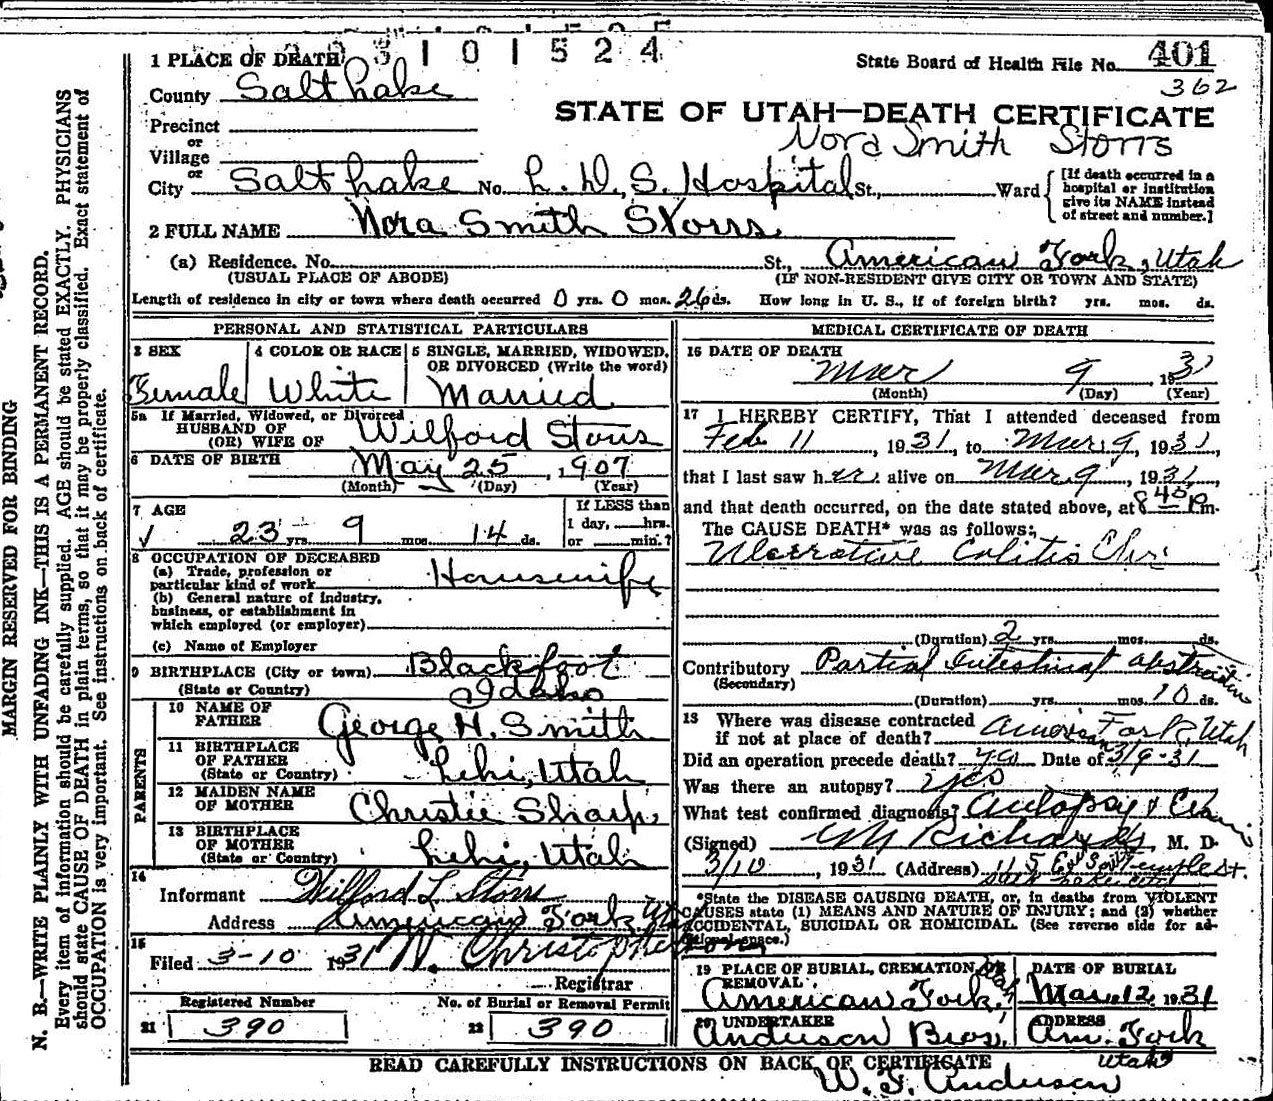 3101524
1 PLACE OF DEATH
State Board of Health File No. 401
362
County Salt Lake
STATE OF UTAH—DEATH CERTIFICATE
Precinct
or
Village
Nora Smith Storrs
or
City Salt Lake No. L. D. S. Hospital St., Ward
[If death occurred in a hospital or institution give its NAME instead of street and number.]
2 FULL NAME Nora Smith Storrs
(a) Residence. No. St., American Fork, Utah
(USUAL PLACE OF ABODE) (IF NON-RESIDENT GIVE CITY OR TOWN AND STATE)
Length of residence in city or town where death occurred 0 yrs. 0 mos. 26 ds. How long in U. S., if of foreign birth? yrs. mos. ds.
PERSONAL AND STATISTICAL PARTICULARS
3 SEX Female
4 COLOR OR RACE White
5 SINGLE, MARRIED, WIDOWED, OR DIVORCED (Write the word) Married
5a If Married, Widowed, or Divorced
HUSBAND OF
(OR) WIFE OF Wilford Storrs
6 DATE OF BIRTH May 25, 1907
(Month) (Day) (Year)
7 AGE
23 yrs. 9 mos. 14 ds.
If LESS than 1 day, hrs. or min.?
8 OCCUPATION OF DECEASED
(a) Trade, profession or particular kind of work Housewife
(b) General nature of industry, business, or establishment in which employed (or employer)
(c) Name of Employer
9 BIRTHPLACE (City or town) Blackfoot
(State or Country) Idaho
PARENTS
10 NAME OF FATHER George H. Smith
11 BIRTHPLACE OF FATHER (State or Country) Lehi, Utah
12 MAIDEN NAME OF MOTHER Christie Sharp
13 BIRTHPLACE OF MOTHER (State or Country) Lehi, Utah
14
Informant Wilford L. Storrs
Address American Fork Utah
15
Filed 3-10 1931 N. Christopherson
Registrar
Registered Number
21 390
No. of Burial or Removal Permit
22 390
MEDICAL CERTIFICATE OF DEATH
16 DATE OF DEATH
Mar 9 1931
(Month) (Day) (Year)
17 I HEREBY CERTIFY, That I attended deceased from
Feb 11, 1931, to Mar 9, 1931,
that I last saw her alive on Mar 9, 1931,
and that death occurred, on the date stated above, at 8 45 P m.
The CAUSE DEATH* was as follows:
Ulcerative Colitis Chr.
(Duration) 2 yrs. mos. ds.
Contributory Partial Intestinal obstruction
(Secondary)
(Duration) yrs. mos. 10 ds.
18 Where was disease contracted
if not at place of death? American Fork, Utah
Did an operation precede death? yes Date of 3/9-31
Was there an autopsy? yes
What test confirmed diagnosis? Autopsy &
(Signed) G M Richards, M. D.
3/10, 1931 (Address) 115 E. So Temple st.
Salt Lake City
*State the DISEASE CAUSING DEATH, or, in deaths from VIOLENT
CAUSES state (1) MEANS AND NATURE OF INJURY; and (2) whether
ACCIDENTAL, SUICIDAL OR HOMICIDAL. (See reverse side for ad-
ditional space.)
19 PLACE OF BURIAL, CREMATION OR REMOVAL American Fork, Utah
DATE OF BURIAL Mar. 12, 1931
20 UNDERTAKER Anderson Bros,
ADDRESS Am. Fork Utah
READ CAREFULLY INSTRUCTIONS ON BACK OF CERTIFICATE
W. F. Anderson
MARGIN RESERVED FOR BINDING
N. B.—WRITE PLAINLY WITH UNFADING INK—THIS IS A PERMANENT RECORD.
Every item of information should be carefully supplied. AGE should be stated EXACTLY. PHYSICIANS
should state CAUSE OF DEATH in plain terms, so that it may be properly classified. Exact statement of
OCCUPATION is very important. See instructions on back of certificate.